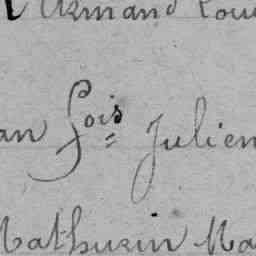 Armand Loui
an Fois Julien
Mathurin Ma